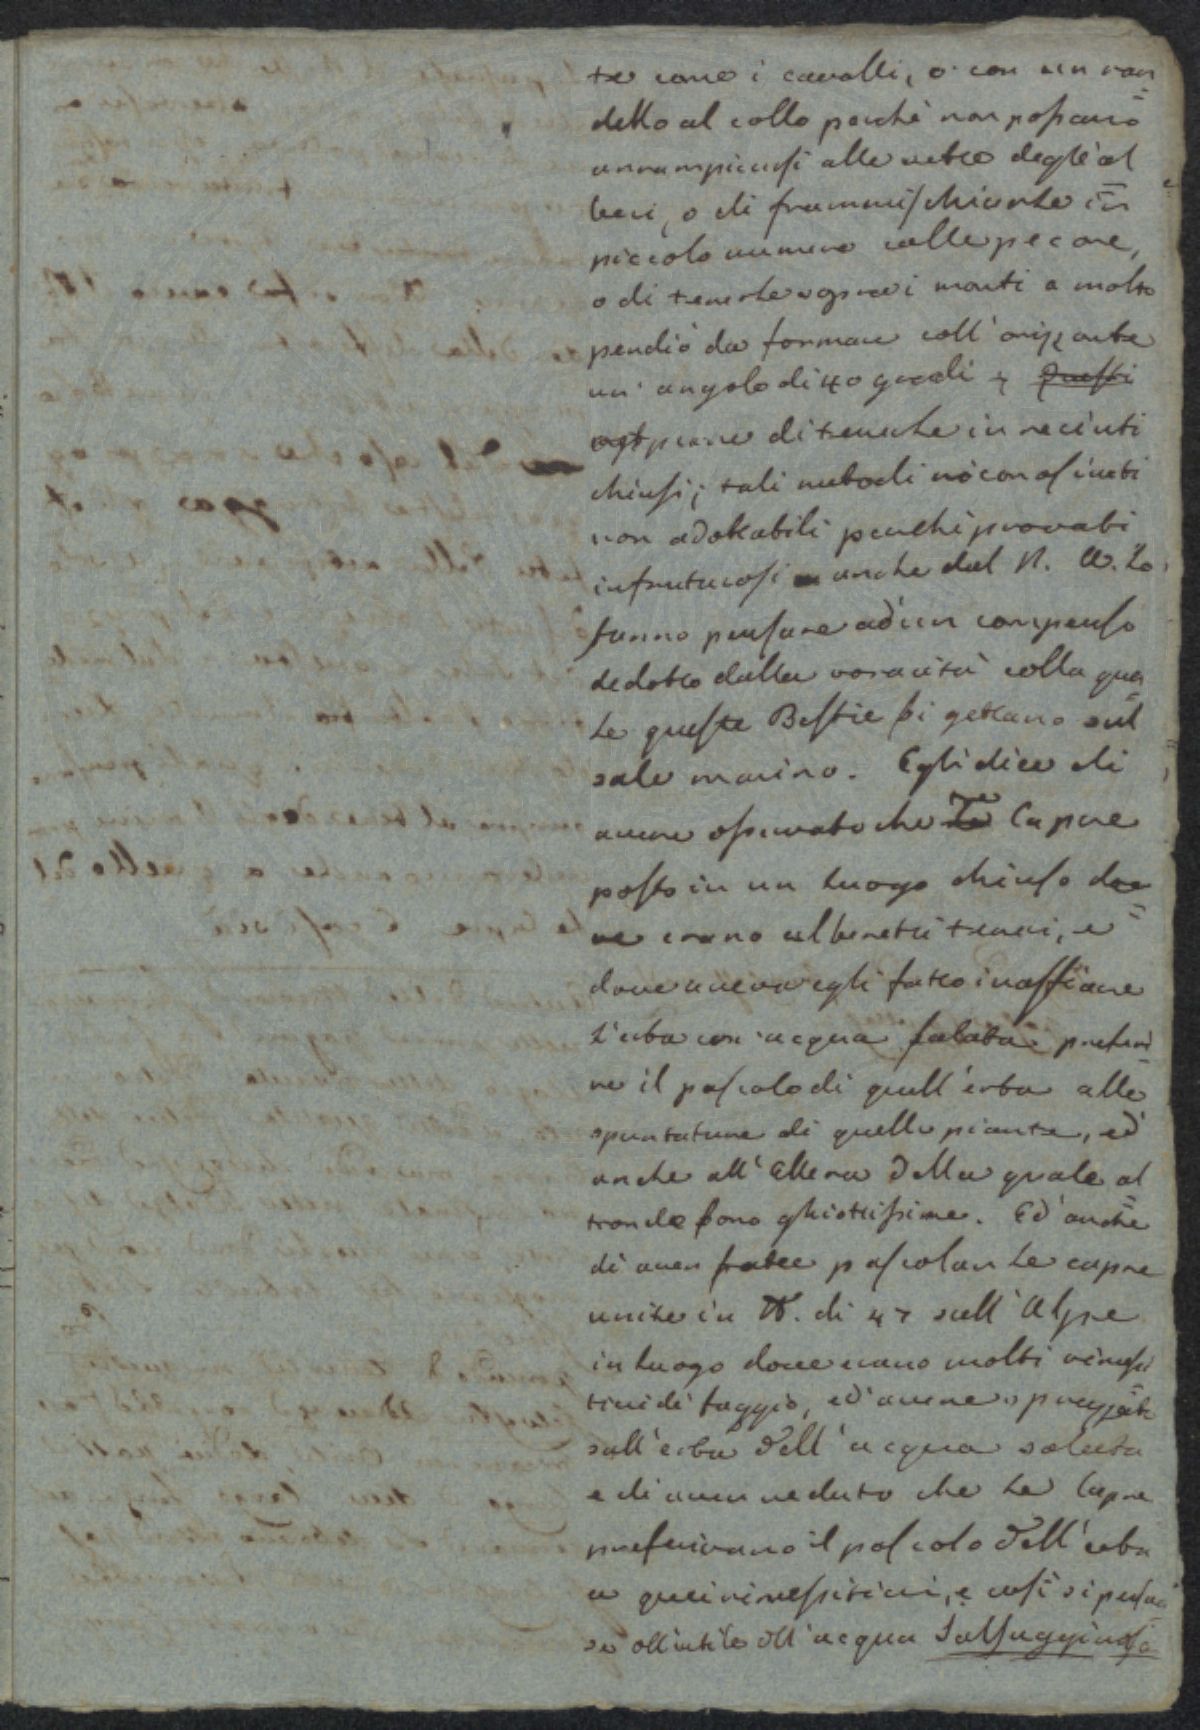 te come i cavalli, o con un ran=
dello al collo perchè non possano
arrampicarsi alle vette degl'al=
beri, o di frammischiarle in
piccolo numero colle pecore,
o di tenerle sopra i monti a molto
pendio da formare coll'orizzonte
un'angolo di 40 gradi, Questi
oppure di tenerle in recinti
chiusi; tali metodi riconosciuti
non adottabili perchè provati
infrutuosi anche dal N. A. lo
fanno pensare ad un compenso
dedotto dalla voracità colla qua=
le queste Bestie si gettano sul
sale marino. Egli dice di
avere osservato che Le Capre
poste in un luogo chiuso do=
ve erano alberetti teneri, e
dove aveva egli fatto inaffiare
l'erba con acqua salata preferi=
re il pascolo di quell'erba alle
spuntature di quelle piante, ed
anche all'Ellera della quale al=
tronde sono ghiottissime. Ed anche
di aver fatte pascolar le capre
unite in N. di 47 sull'Alpe
in luogo dove erano molti rimessi
ticci di faggio, ed avere spruzzato
sull'erba dell'acqua salata
e di aver veduto che le Capre
preferivano il pascolo dell'erba
a quei rimessiticci, e così si persua=
se dell'utile dell'acqua Salsugginosa